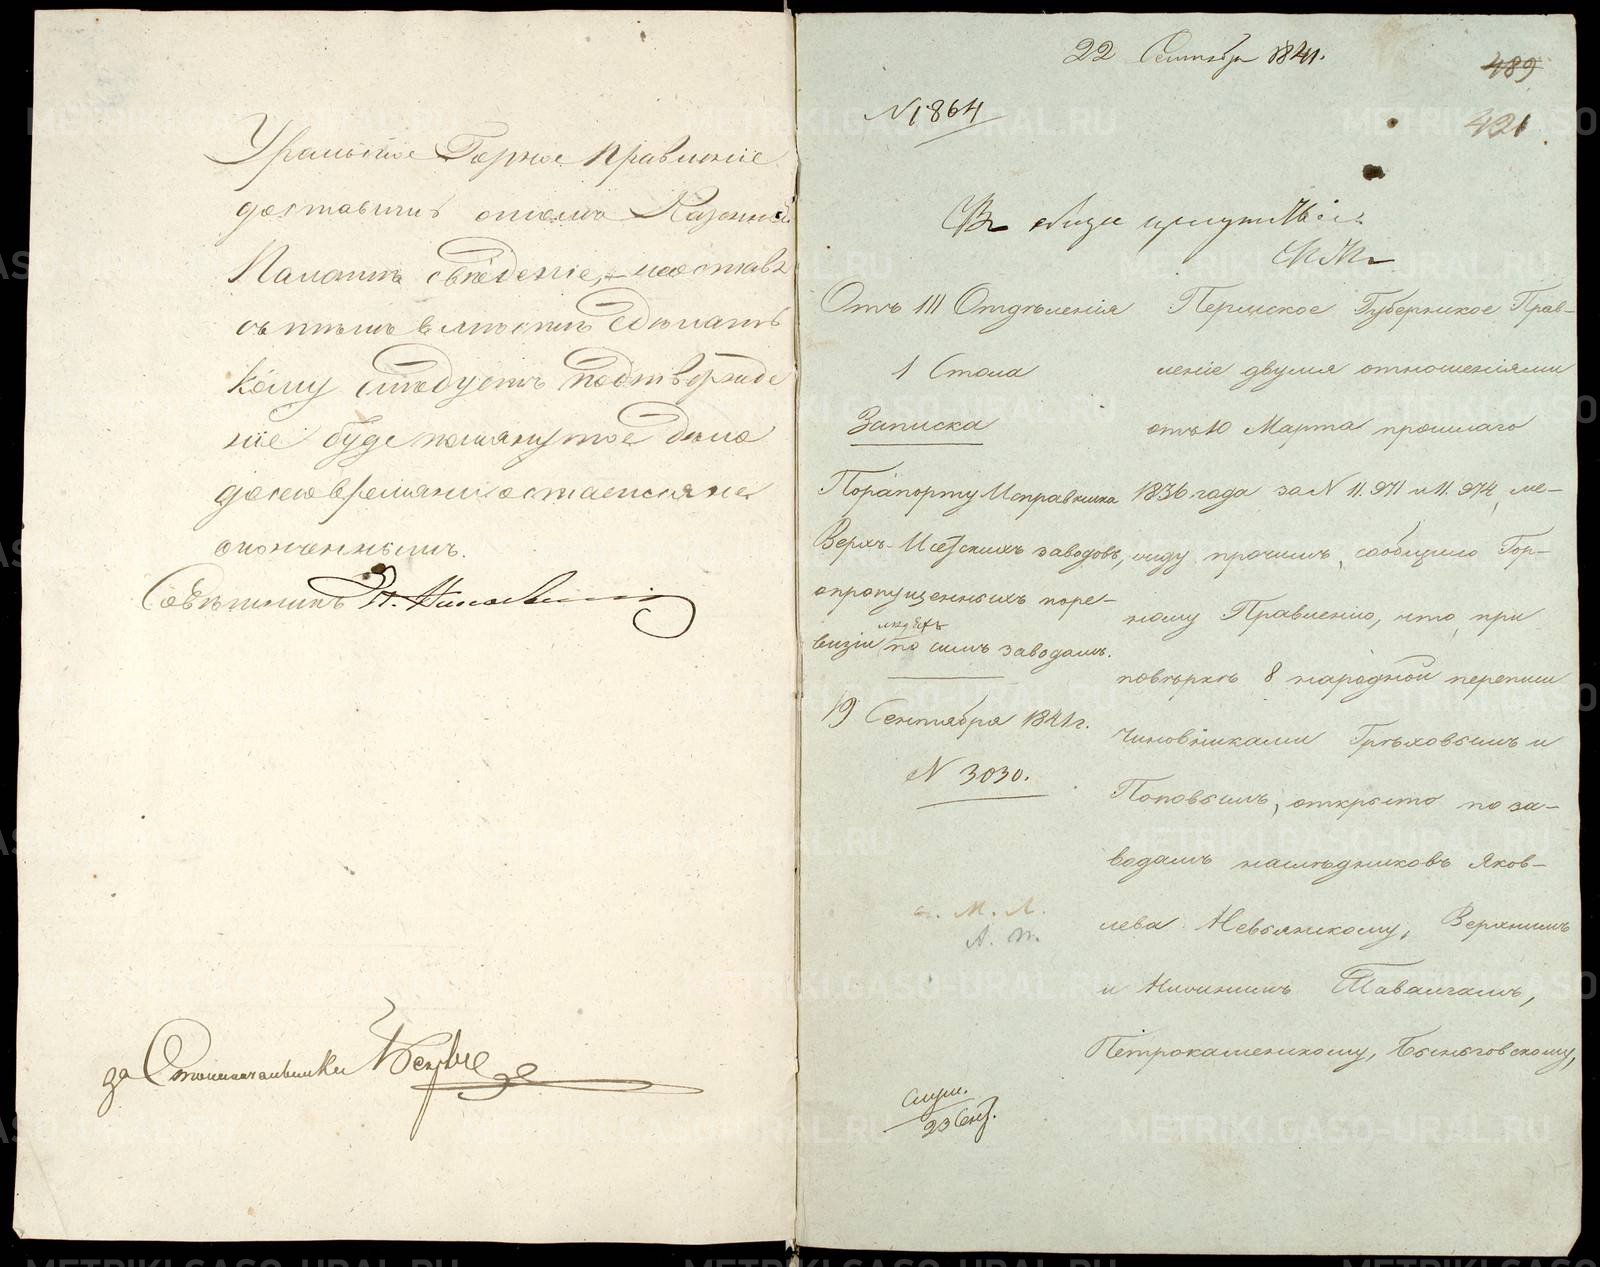 Уральское Горное Правленіе
доставить о томъ Казенной
Палатѣ свѣденіе,
съ тѣмъ вмѣстѣ сдѣлать
кому слѣдуетъ подтвержде
ніе буде помянутое дѣло
досего времяни остается не
оконченнымъ.
Совѣтникъ
за Столоначальника
22 Сентября 1841.
489
421
N 1864
Въ общее присутствіе
Отъ III Отдѣленія
1 Стола
Записка
По рапорту Исправника
Верхъ-Исетскихъ заводовъ,
о пропущенныхъ по ре-
людѣхъ
визіи по симъ заводамъ.
19 Сентября 1841 г.
N 3030.
Пермское Губернское Прав-
леніе двумя отношеніями
отъ 10 Марта прошлаго
1836 года за N 11.971 и 11.974, ме-
жду прочимъ, сообщило Гор-
ному Правленію, что, при
повѣркѣ 8 народной переписи
чиновниками Грѣховымъ и
Поповымъ, открыто по за-
водамъ наслѣдниковъ Яков-
лева Невьянскому, Верхнимъ
и Нижнимъ Таваламъ,
Петрокаменскому, Быньговскому,
а. М. Л.
А. П.
Слуш.
23 Сент.
METRIKI.GASO-URAL.RU